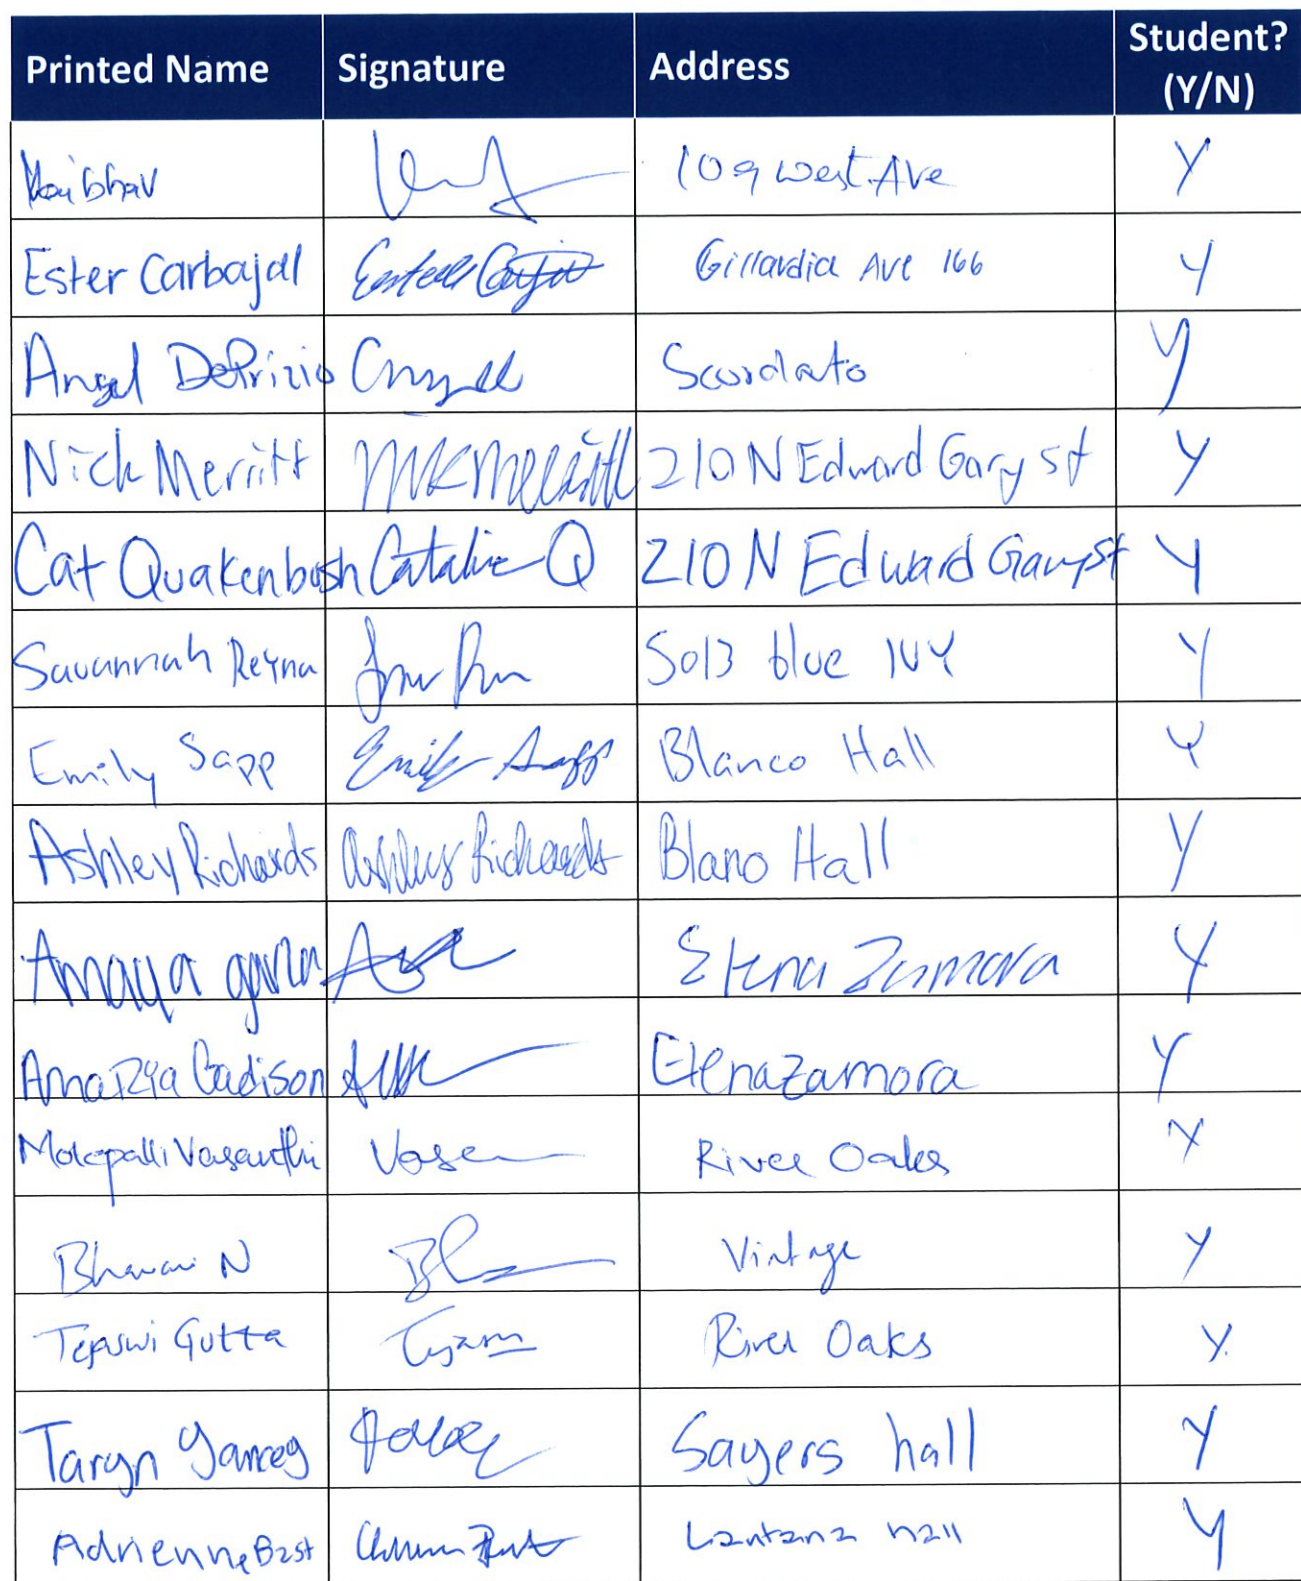 Printed Name Signature Address Student? (Y/N)
Vaibhav 109 West Ave Y
Ester Carbajal Gillardia Ave 166 Y
Angel DePrizio Scordato Y
Nick Merritt Nick Merritt 210 N Edward Gary St Y
Cat Quakenbush Q 210 N Edward Gary St Y
Savannah Reyna 5013 blue IVY Y
Emily Sapp Emily Sapp Blanco Hall Y
Ashley Richards Ashley Richards Blano Hall Y
Amaya garza Elena Zamora Y
Cadison Elena Zamora Y
Vasanthi River Oaks Y
N Vintage Y
Tejaswi Gutta River Oaks Y.
Taryn Yancey Sayers hall Y
Adrienne Bast Lantana hall Y